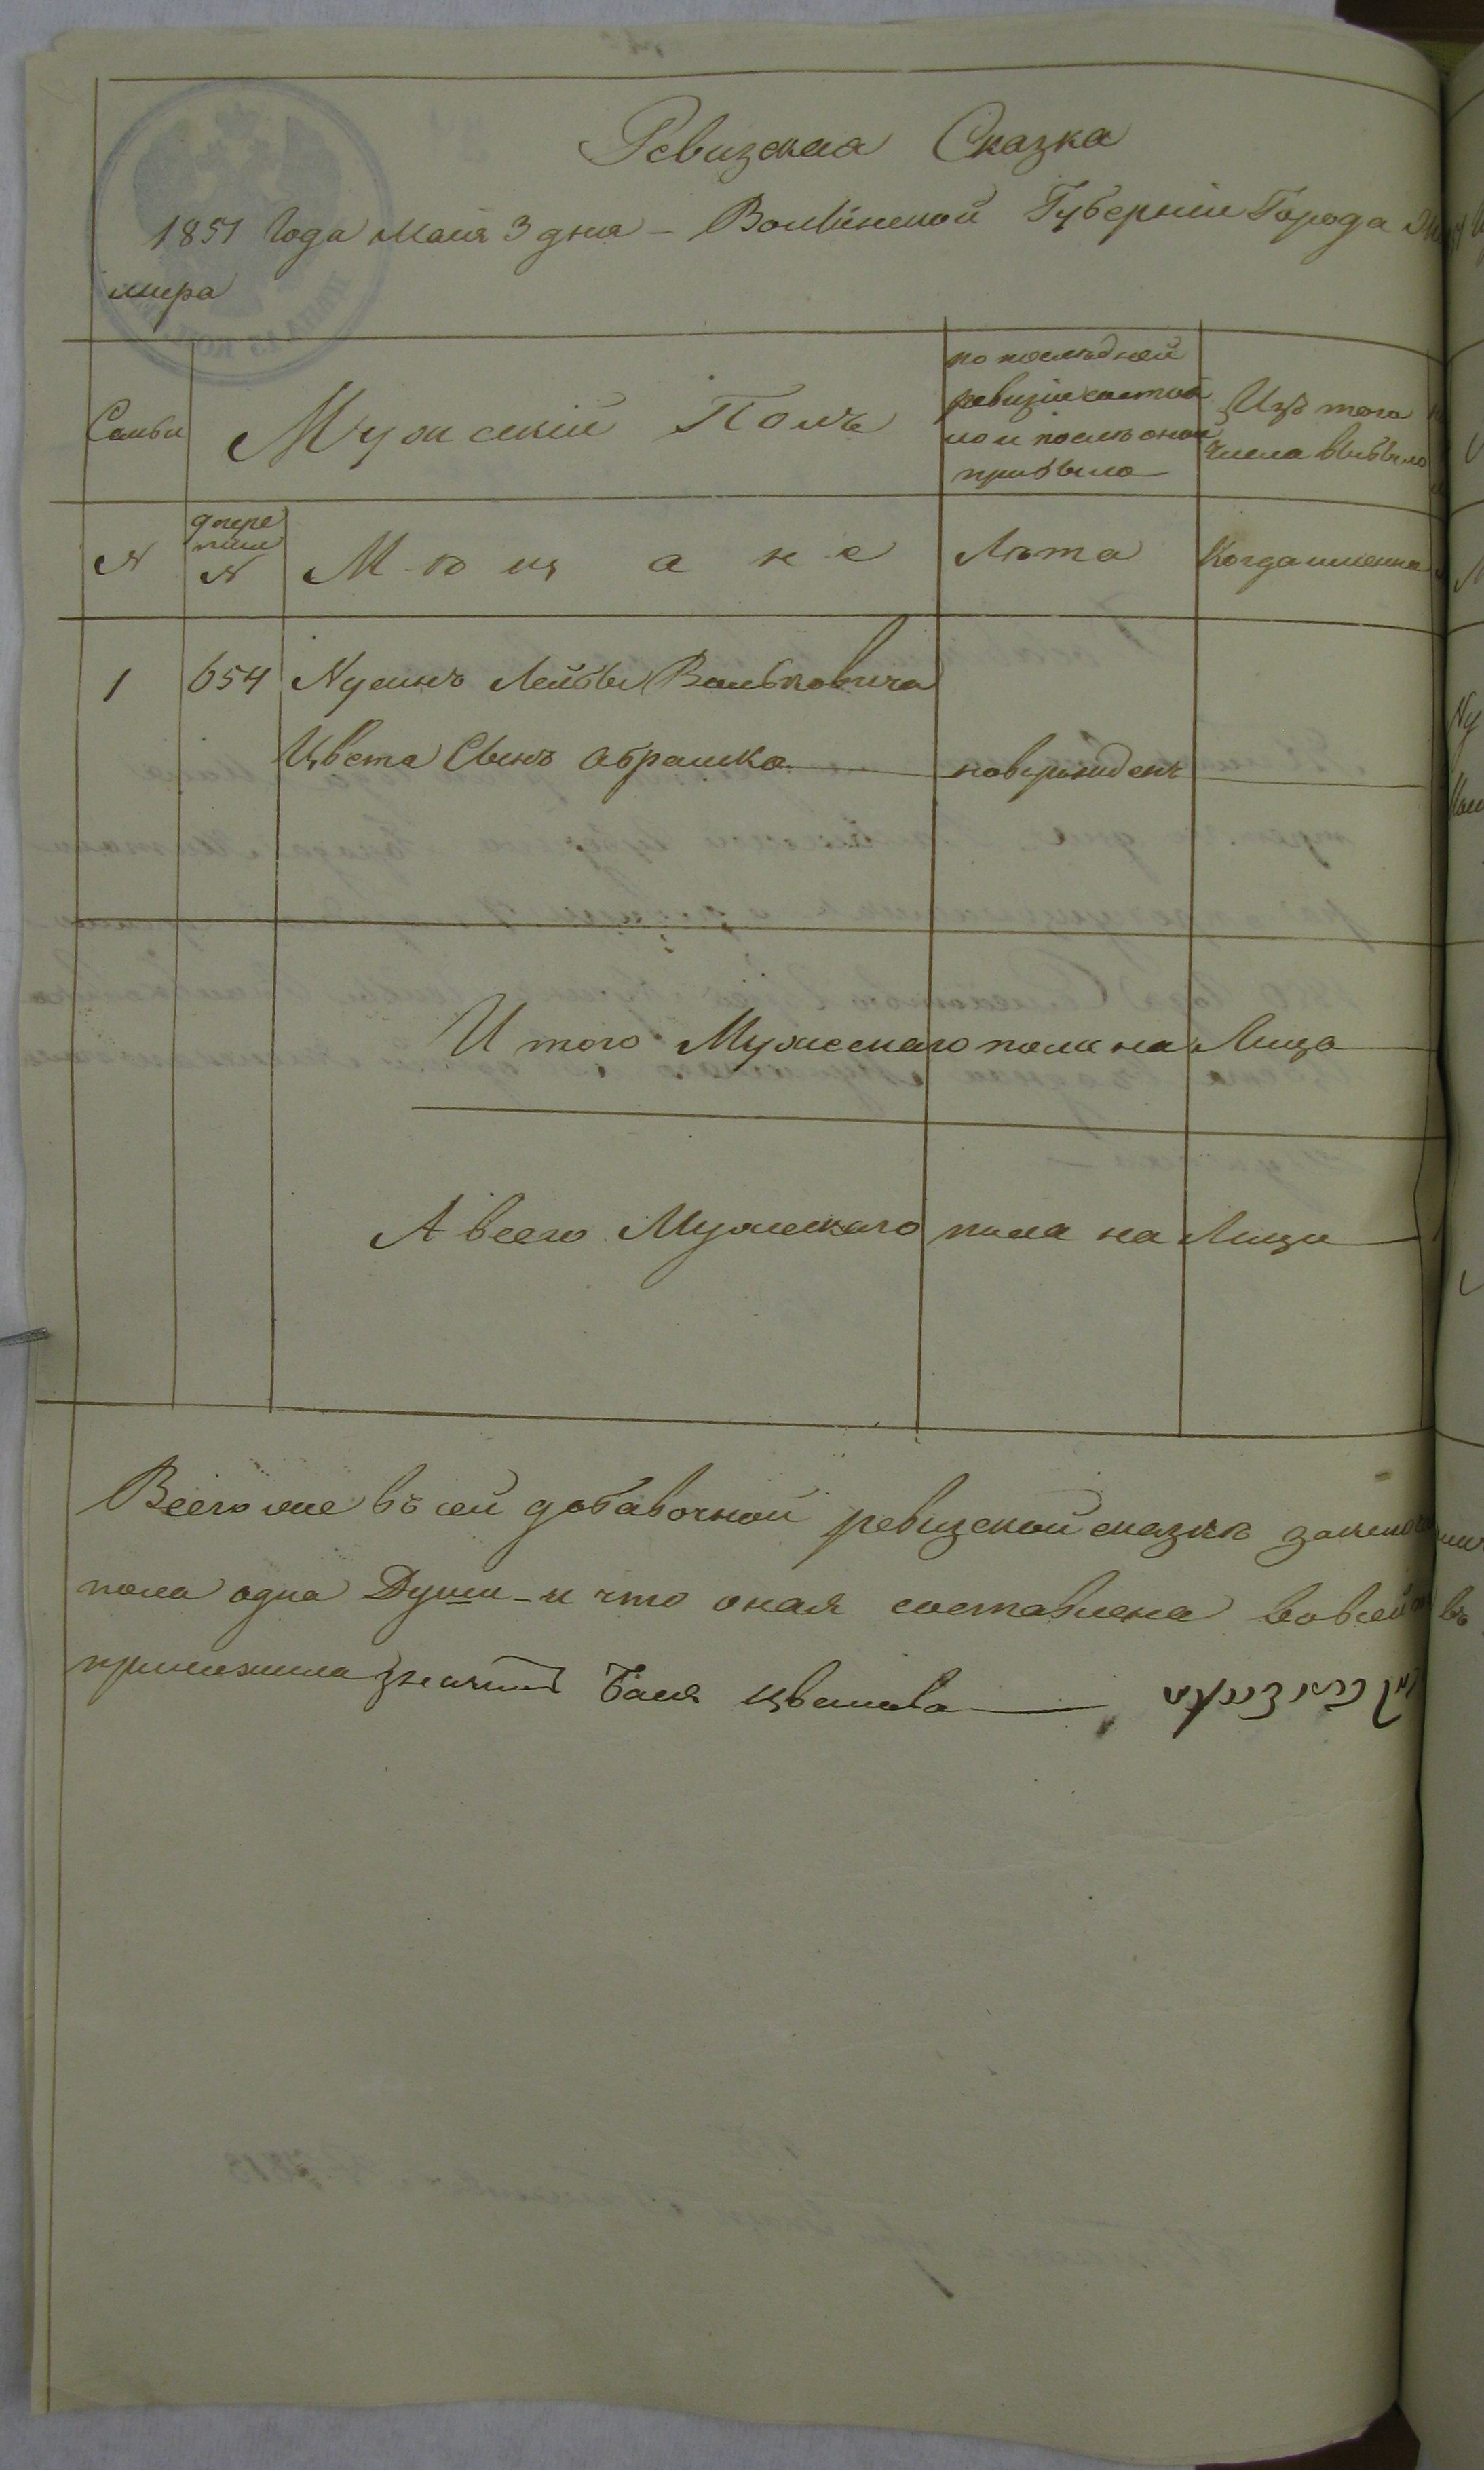 Ревизская Сказка
1851 Года Мая 3 дня – Волынской Губернии Города
мира
Семьи
Мужеский Полъ
по последней
ревизіи состоя
ло и после оной
прибыло
Изъ того
числа выбыло
№
№
Мѣщане
Лѣта
Когда именно
1 654 Нусинъ Лейбы Вольковича
Цвета Сынъ Абрашко новорожденъ
И того Мужескаго пола на Лицо
А всего Мужескаго пола на Лицо
Всего же въ сей добавочной ревизской сказкѣ
пола одна Душа – и что оная составлена
Баля Цветова